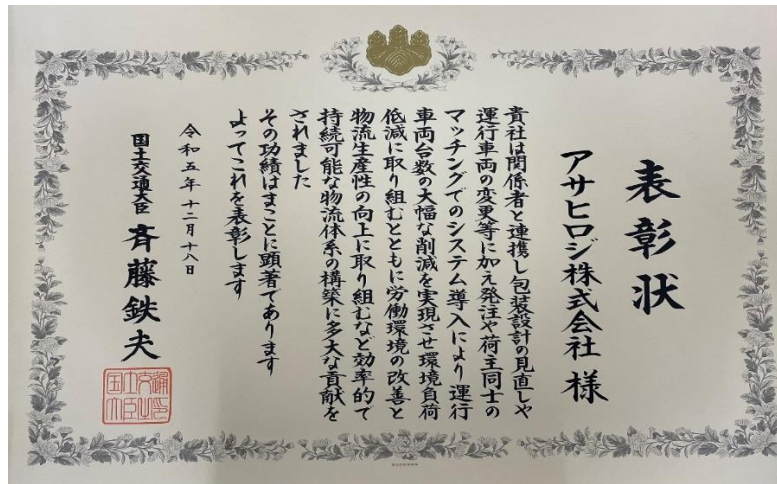 表彰状
アサヒロジ株式会社 様
貴社は関係者と連携し包装設計の見直しや
運行車両の変更等に加え発注や荷主同士の
マッチングでのシステム導入により運行
車両台数の大幅な削減を実現させ環境負荷
低減に取り組むとともに労働環境の改善と
物流生産性の向上に取り組むなど効率的で
持続可能な物流体系の構築に多大な貢献を
されました
その功績はまことに顕著であります
よってこれを表彰します
令和五年十二月十八日
国土交通大臣 斉藤鉄夫
国土交通大臣之印